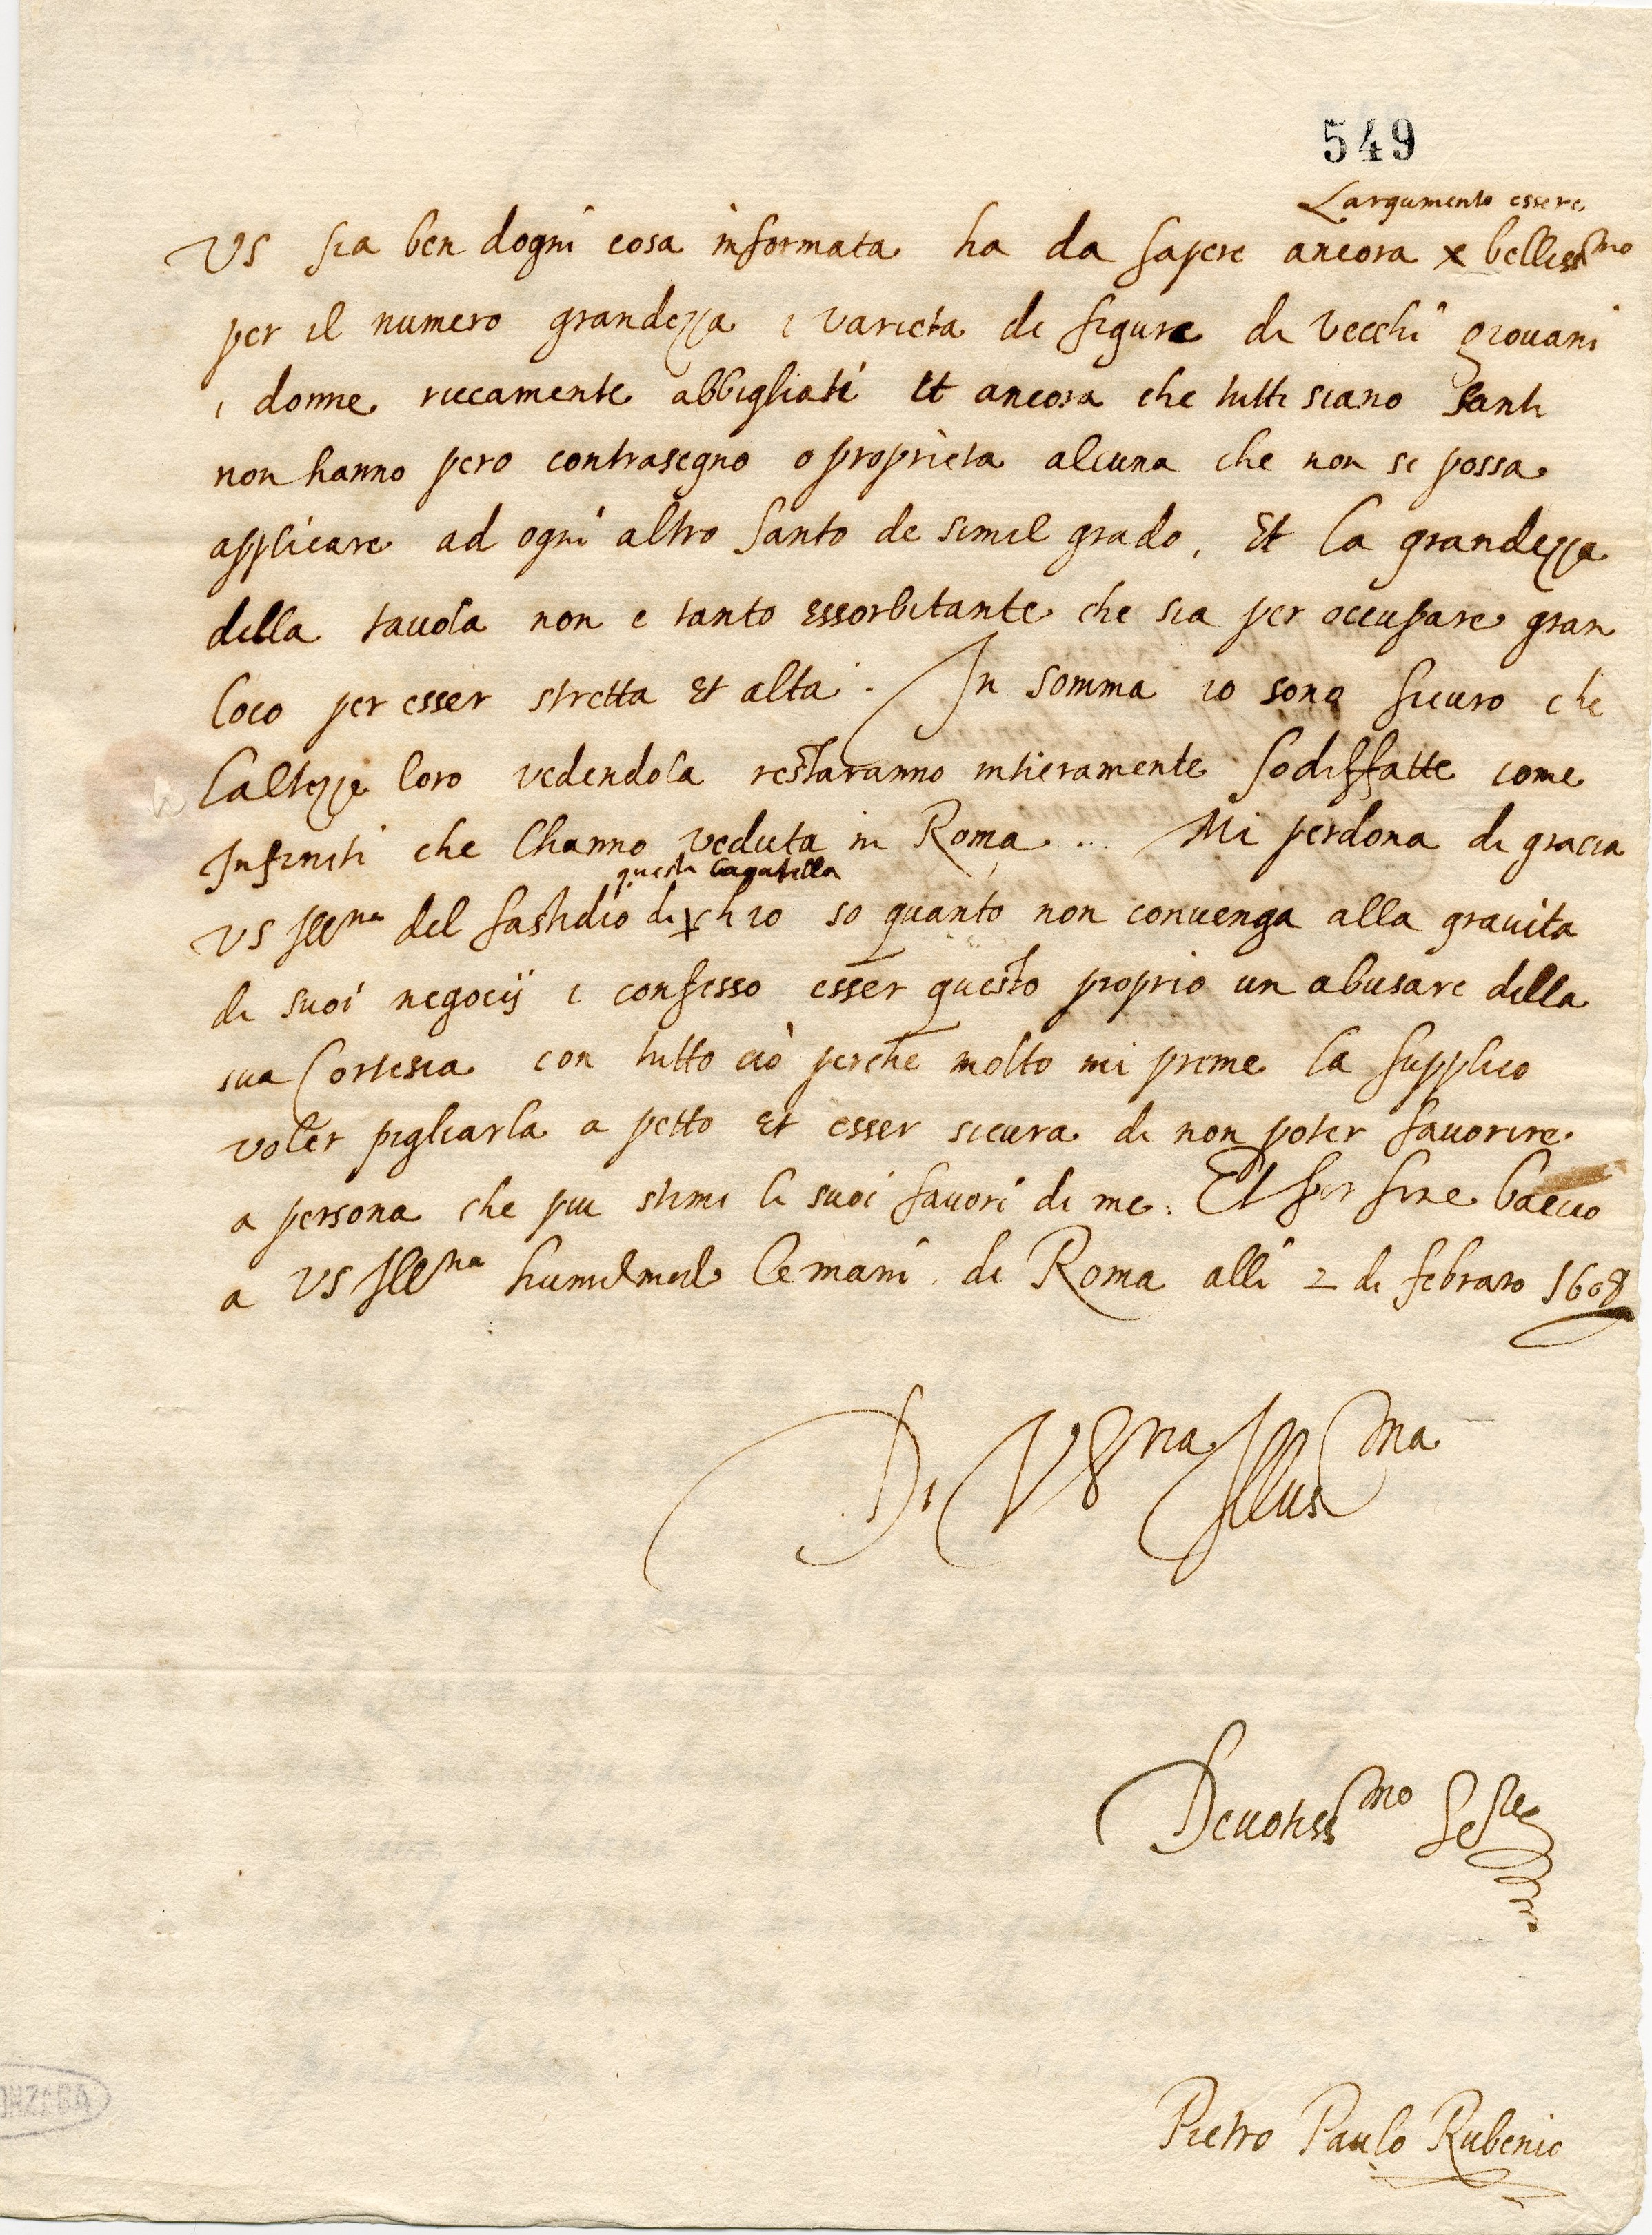 549
Largumento essere
VS sia ben dogni cosa informata ha da sapere ancora x belliss.mo
per il numero grandezza e varieta di figure di vecchi giovani
e donne riccamente abbigliate Et ancora che tutti siano Santi
non hanno pero contrasegno o proprieta alcuna che non si possa
applicare ad ogni altro Santo de simil grado. Et la grandezza
della tavola non e tanto essorbitante che sia per occupare gran
loco per esser stretta et alta. In somma io sono sicuro che
laltezze loro vedendola restaranno intieramente sodisfatte come
Infiniti che lhanno veduta in Roma.. Mi perdona di gracia
questa bagatella
VS Illma del fastidio di x ch io so quanto non convenga alla gravita
di suoi negocij e confesso esser questo proprio un abusare della
sua Cortesia con tutto ciò perche molto mi preme la supplico
voler pigliarla a petto et esser sicura di non poter favorire
a persona che piu stimi li suoi favori di me. Et per fine baccio
a VS Illma humilmente le mani. di Roma alli 2 di febraro 1608
Di V S ria Illusma
Devotissmo Sere
Pietro Paulo Rubenio
ONZAGA